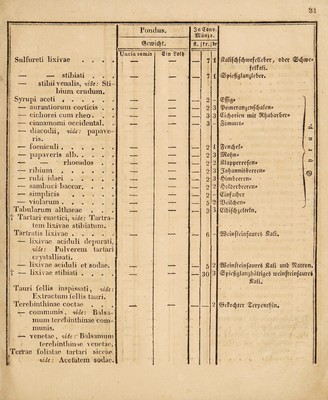 21
Pondus.
In Conv. Münze.
Gewicht.
Uncia semis | Ein Loth | fl. | fr. | pf.
Sulfureti lixivae . . . . — — — 7 1 Kalischschwefelleber, oder Schwefelkali.
— — stibiati . . . — — — 7 1 Spießglanzleber.
— stibii venalis, vide: Stibium crudum.
Syrupi aceti . . . . . — — — 2 – Essig=
— aurantiorum corticis . . — — — 2 3 Pomeranzenschalen=
— cichorei cum rheo . . . — — — 3 3 Cichorien mit Rhabarber=
— cinnamomi occidental. . — — — 3 – Zimmet=
— diacodii, vide: papaveris.
— foeniculi . . . . . — — — 2 1 Fenchel=
— papaveris alb. . . . . — — — 2 3 Mohn=
— — rhoeados . — — — 2 – Klapperrosen=
— ribium . . . . . . — — — 2 3 Johannisbeeren=
— rubi idaei . . . . . — — — 2 3 Himbeeren=
— sambuci baccar. . . . — — — 2 2 Holderbeeren=
— simplicis . . . . . — — — 2 – Einfacher
— violarum . . . . . — — — 5 2 Veilchen=
Syrup.
Tabularum altheae . . . — — — 3 3 Eibischzelteln.
† Tartari emetici, vide: Tartratem lixivae stibiatum.
Tartratis lixivae . . . . — — — 6 – Weinsteinsaures Kali.
— lixivae aciduli depurati, vide: Pulverem tartari crystallisati.
— lixivae aciduli et sodae. — — — 5 2 Weinsteinsaures Kali und Natron.
† — lixivae stibiati . . . . — — — 30 3 Spießglanzhältiges weinsteinsaures Kali.
Tauri fellis inspissati, vide: Extractum fellis tauri.
Terebinthinae coctae . . . — — — — 2 Gekochter Terpenthin.
— communis, vide: Balsamum terebinthinae communis.
— venetae, vide: Balsamum terebinthinae venetae.
Terrae foliatae tartari siccae, vide: Acetatem sodae.